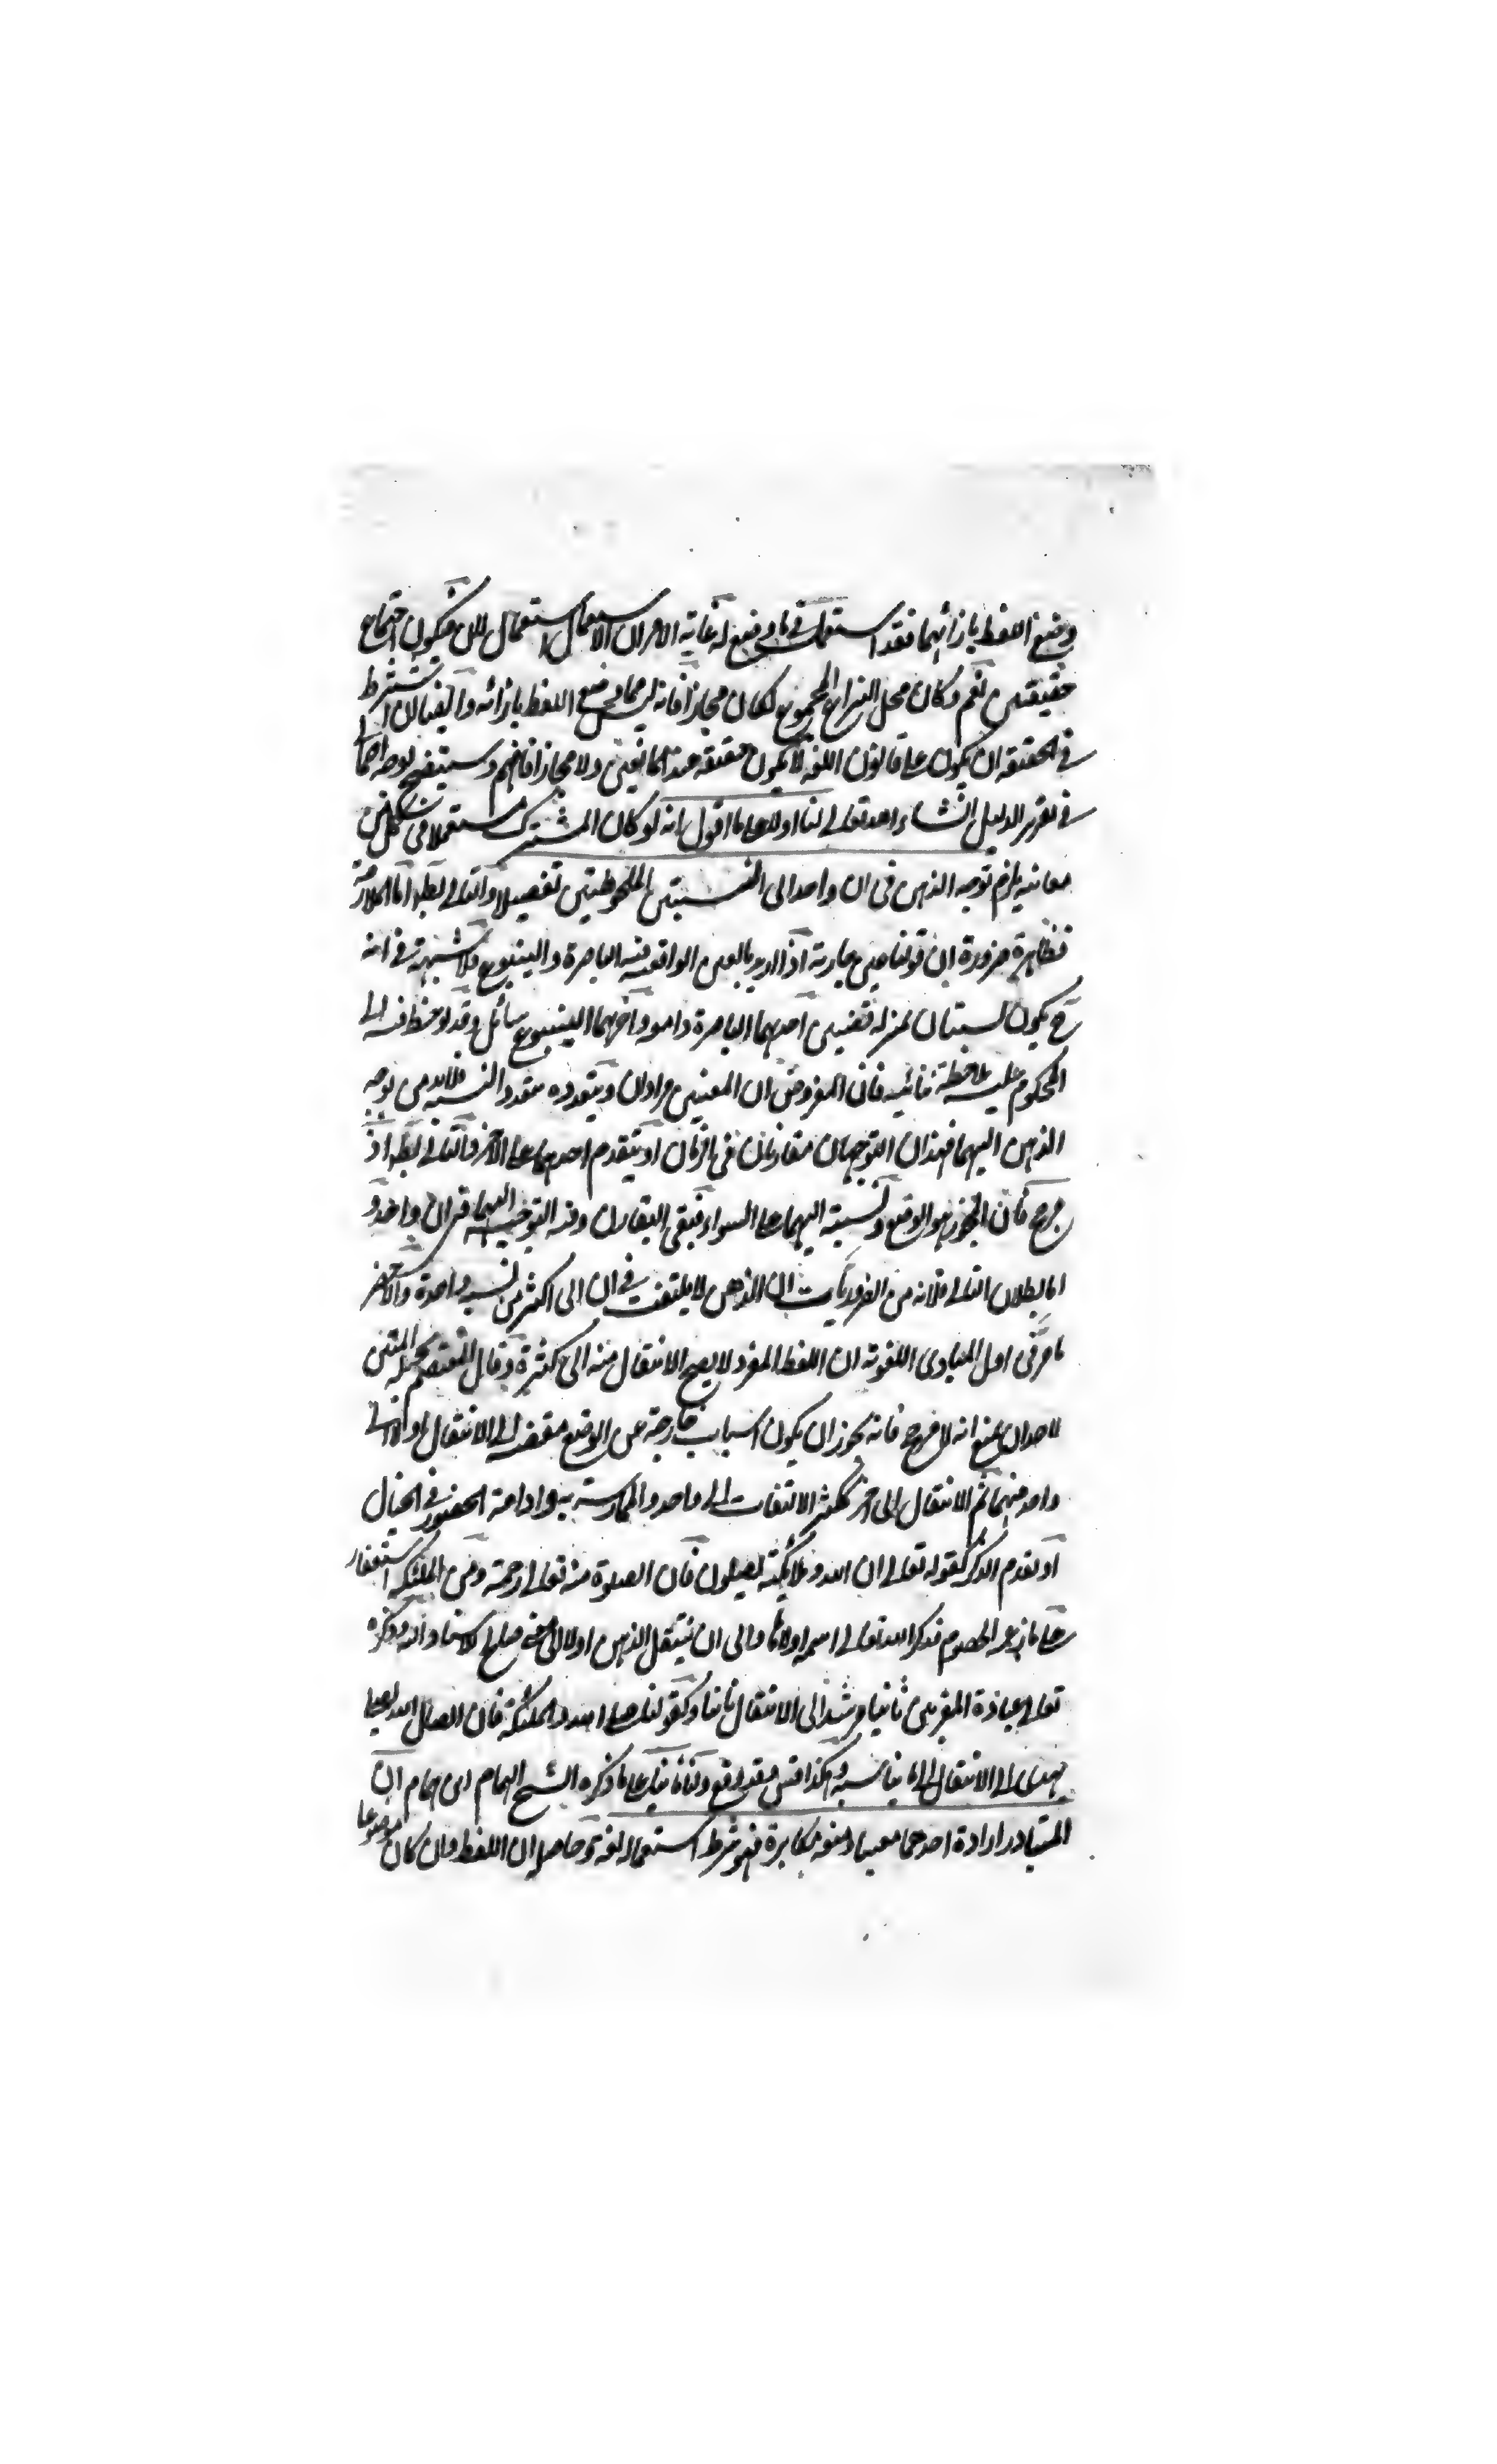 وضع اللفظ بازائهما فقد استعملت في ما وضع له غاية الامر ان الاستعمال استعمالان فيكون اجتماع
حقيقتين نعم لو كان محل النزاع المجموع لكان مجازا فانه ليس مما وضع اللفظ بازائه وايضا لان اشترط
في الحقيقة ان يكون على قانون اللغة لا يكون حقيقة عند المانعين ولا مجازا فافهم وسيتضح لوجه
في تقرير الدليل انشاء الله تعالى لنا اولا على ما اقول انه لو كان المشترك مستعملا في كل من
معانيه يلزم توجه الذهن في ان واحد الى النسبتين الملحوظتين تفصيلا والتالي بط اما الملازمة
فظاهرة ضرورة ان قولنا عين جارية اذا اريد بالعين الواقعة فيه الباصرة والينبوع فلا شبهة في انه
ح يكون نسبتان بمنزلة قضيتين احدهما الباصرة وآخرهما الينبوع سائل وقد لوحظ فيه الى
المحكوم عليه ملاحظة ثانية فان المفروض ان المعنيين مرادان وبتعدده يتعدد النسبة فلابد من توجه
الذهن اليهما فهذان التوجهان متقارنان في الزمان او يتقدم احدهما على الآخر والثاني بط اذ لا
مرجح فان المجوز هو الوضع ونسبته اليهما على السواء فبقي التقارن وفيه التوجه اليهما في ان واحد و
اما بطلان التالي فلانه من الضروريات ان الذهن لا يلتفت في ان الى اكثر من نسبة واحدة واستحضر
ما مر في اول المبادي اللغوية ان اللفظ المفرد لا يصح الانتقال منه الى كثرة وقال المعتصم بحبل المتين
لاحد ان يمنع انه لا مرجح فانه يجوز ان يكون اسباب خارجة عن الوضع مقتضية الى الانتقال اولا الى
واحد منهما ثم الانتقال الى آخر ككثرة الالتفات الى واحد والممارسة به وادامة الحضور في الخيال
او تقدم الذكر كقوله تعالى ان الله وملائكته يصلون فان الصلوة منه تعالى رحمة ومن الملئكة استغفار
على ما زعم الخصوم فذكر الله تعالى اسمه اولا والى ان ينتقل الذهن اولا الى معنى صالح لاسناد اليه وذكره
تعالى عباده المقربين ثانيا مرشد الى الانتقال ثانيا وكقولنا صلى الله والملئكة فان اتصال الله بصلى
يهدي الى الانتقال الى ما يناسبه وهكذا قس فقد وقع ولنا ثانيا على ما ذكره الشيخ الهمام ابن همام ان
المتبادر ارادة احدهما معينا ومنعه مكابرة فهو شرط استعماله لغة وحاصله ان اللفظ وان كان موضوعا